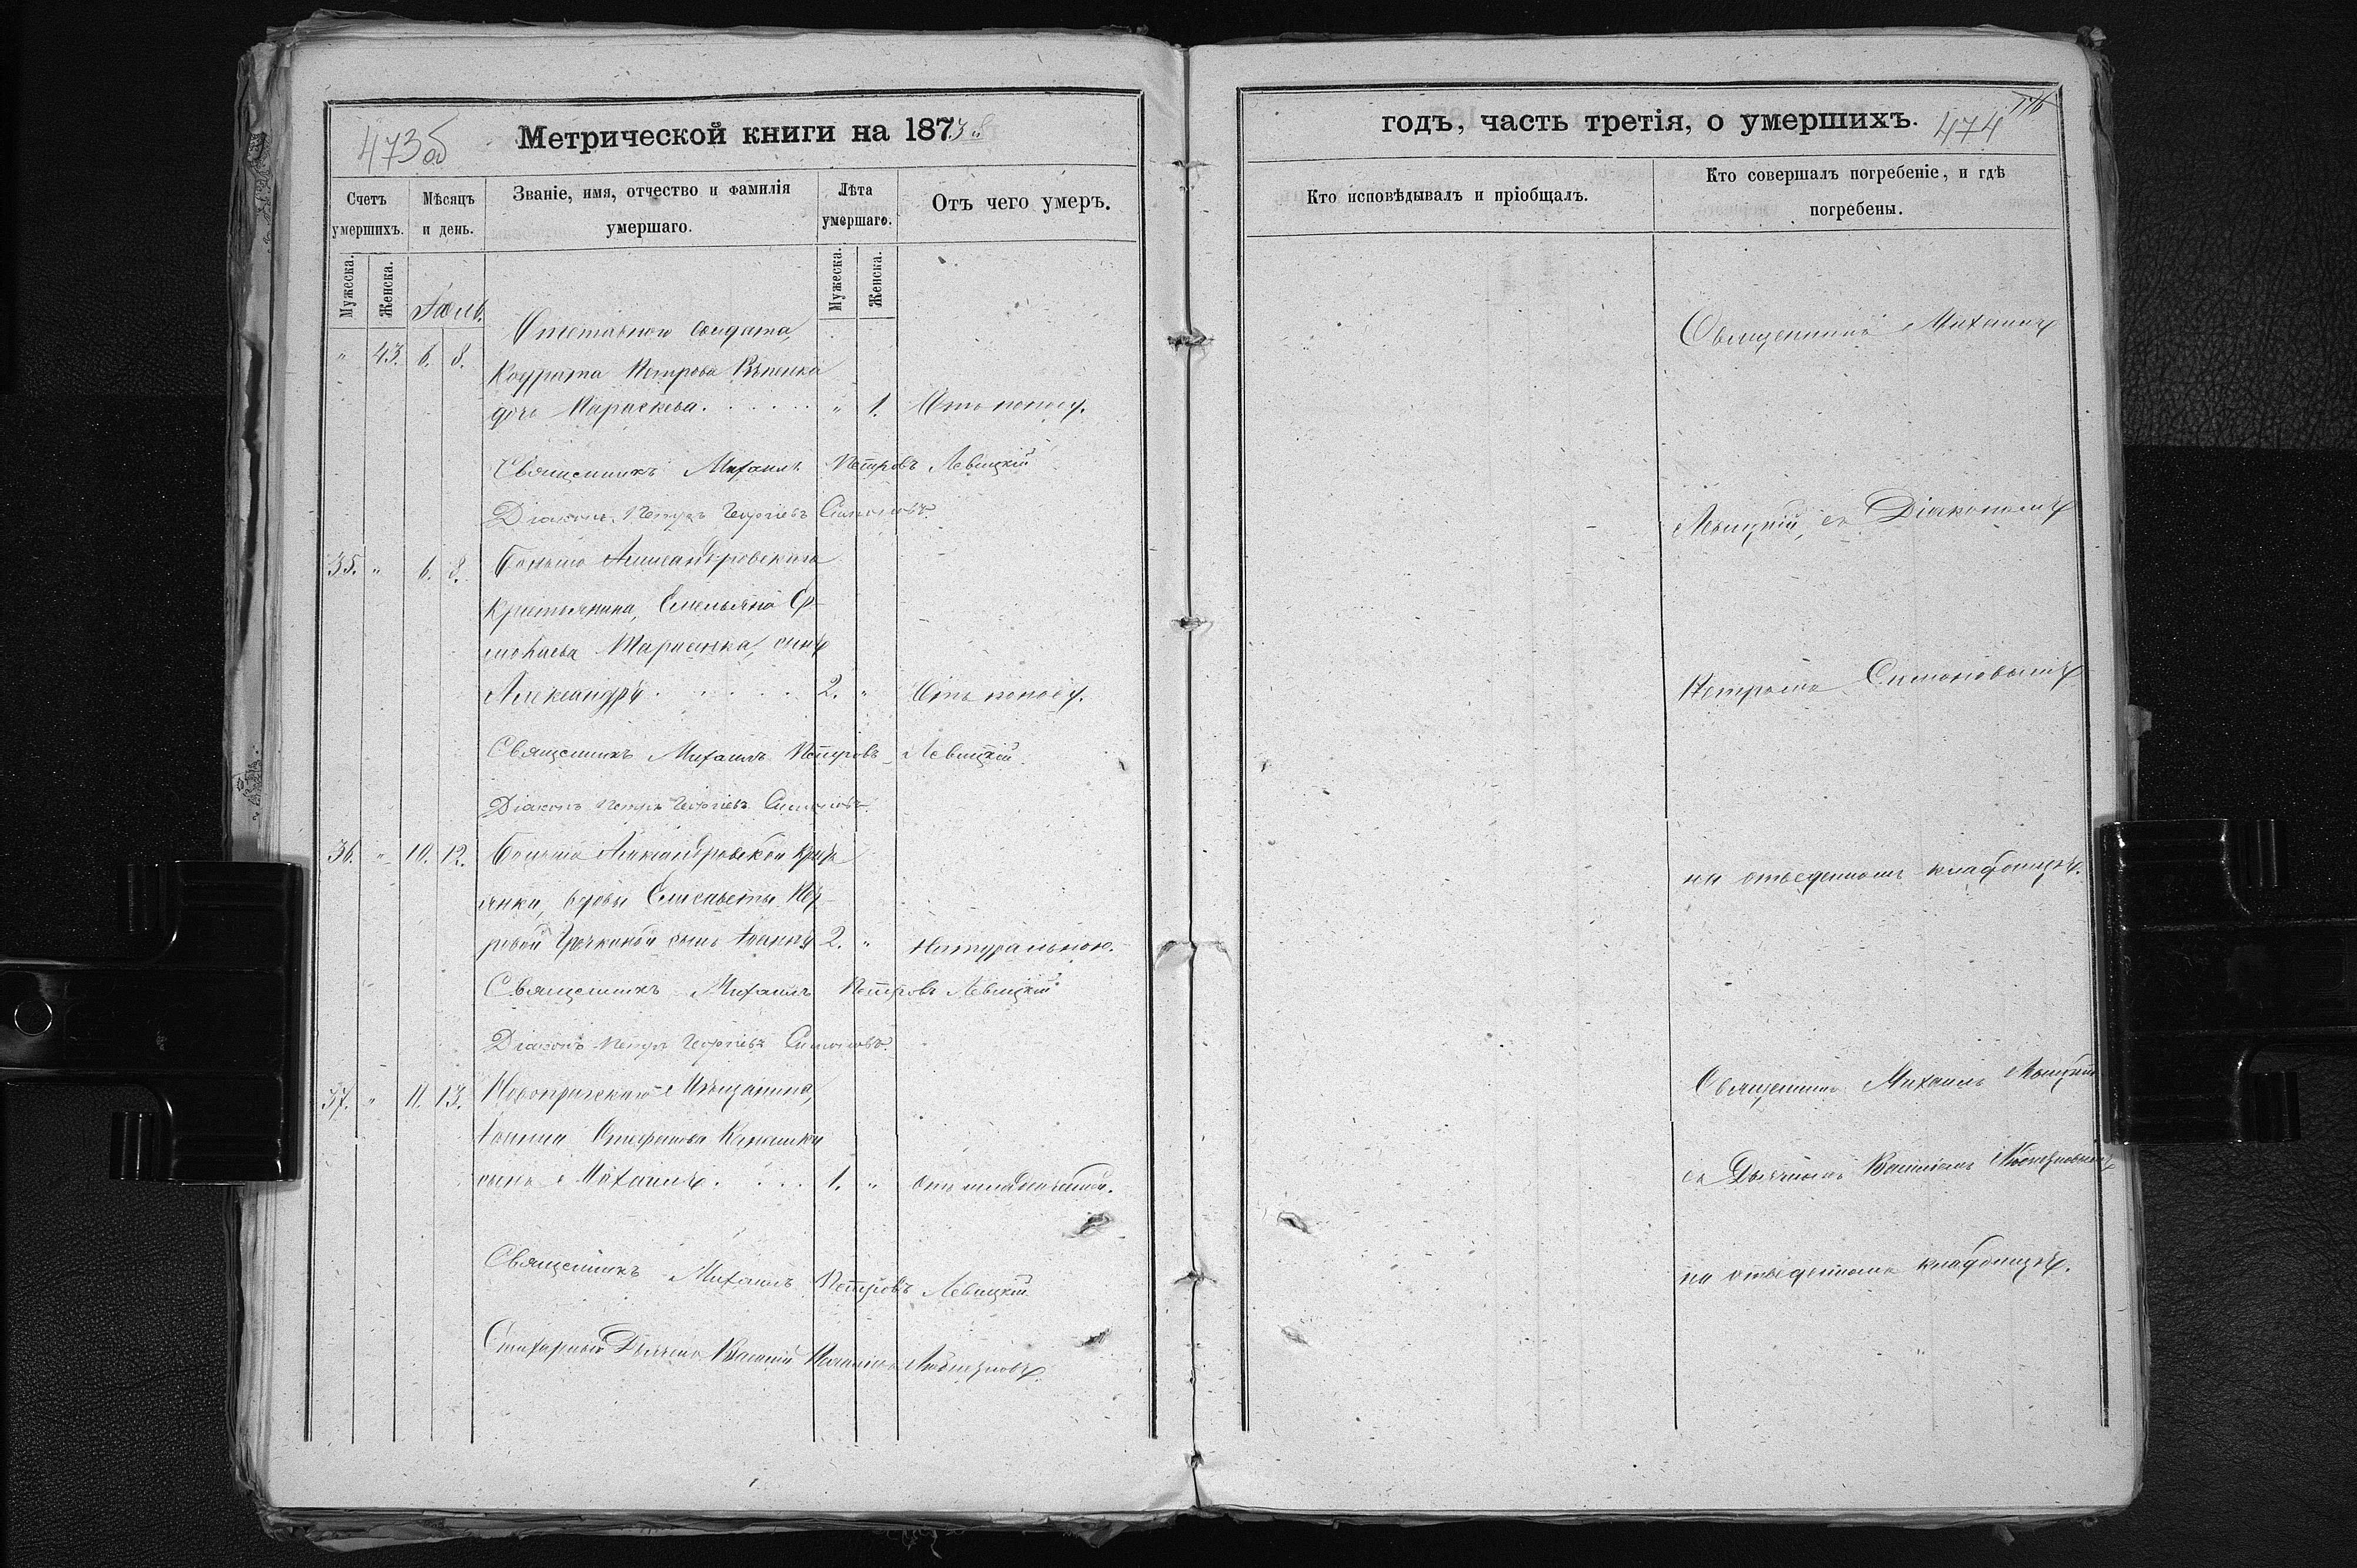 473об
Метрической книги на 1873й
Счетъ умершихъ.
Мѣсяцъ и день.
Званіе, имя, отчество и фамилія умершаго.
Лѣта умершаго.
Отъ чего умеръ.
Мужеска.
Женска.
Мужеска.
Женска.
Іюль.
" 43. 6. 8. Отставнаго солдата,
Кодрата Петрова
дочь Параскева. " 1. Отъ поносу.
Священникъ Михаилъ Петровъ Левицкій
Діаконъ Петръ Георгіевъ Симоновъ.
35. " 6. 8. Александровскаго
Крестьянина, Емельяна
Тарасенка, сынъ
Александръ 2. " Отъ поносу.
Священникъ Михаилъ Петровъ Левицкій.
Діаконъ Петръ Георгіевъ Симоновъ.
36. " 10. 12. Александровской
вдовы Елисаветы
сынъ Іоаннъ 2. " Натуральною.
Священникъ Михаилъ Петровъ Левицкій
Діаконъ Петръ Георгіевъ Симоновъ.
37. " 11. 13. Мѣщанина,
Іоанна Стефанова
сынъ Михаилъ. 1. " Отъ младенческой.
Священникъ Михаилъ Петровъ Левицкій
Стихарный Дьячекъ Василій
годъ, часть третія, о умершихъ.
474
Кто исповѣдывалъ и пріобщалъ.
Кто совершалъ погребеніе, и гдѣ погребены.
Священникъ Михаилъ
Левицкій, съ Діакономъ
Петромъ Симоновымъ
на отведенномъ кладбищѣ.
Священникъ Михаилъ Левицкій
съ Дьячкомъ
на отведенномъ кладбищѣ.